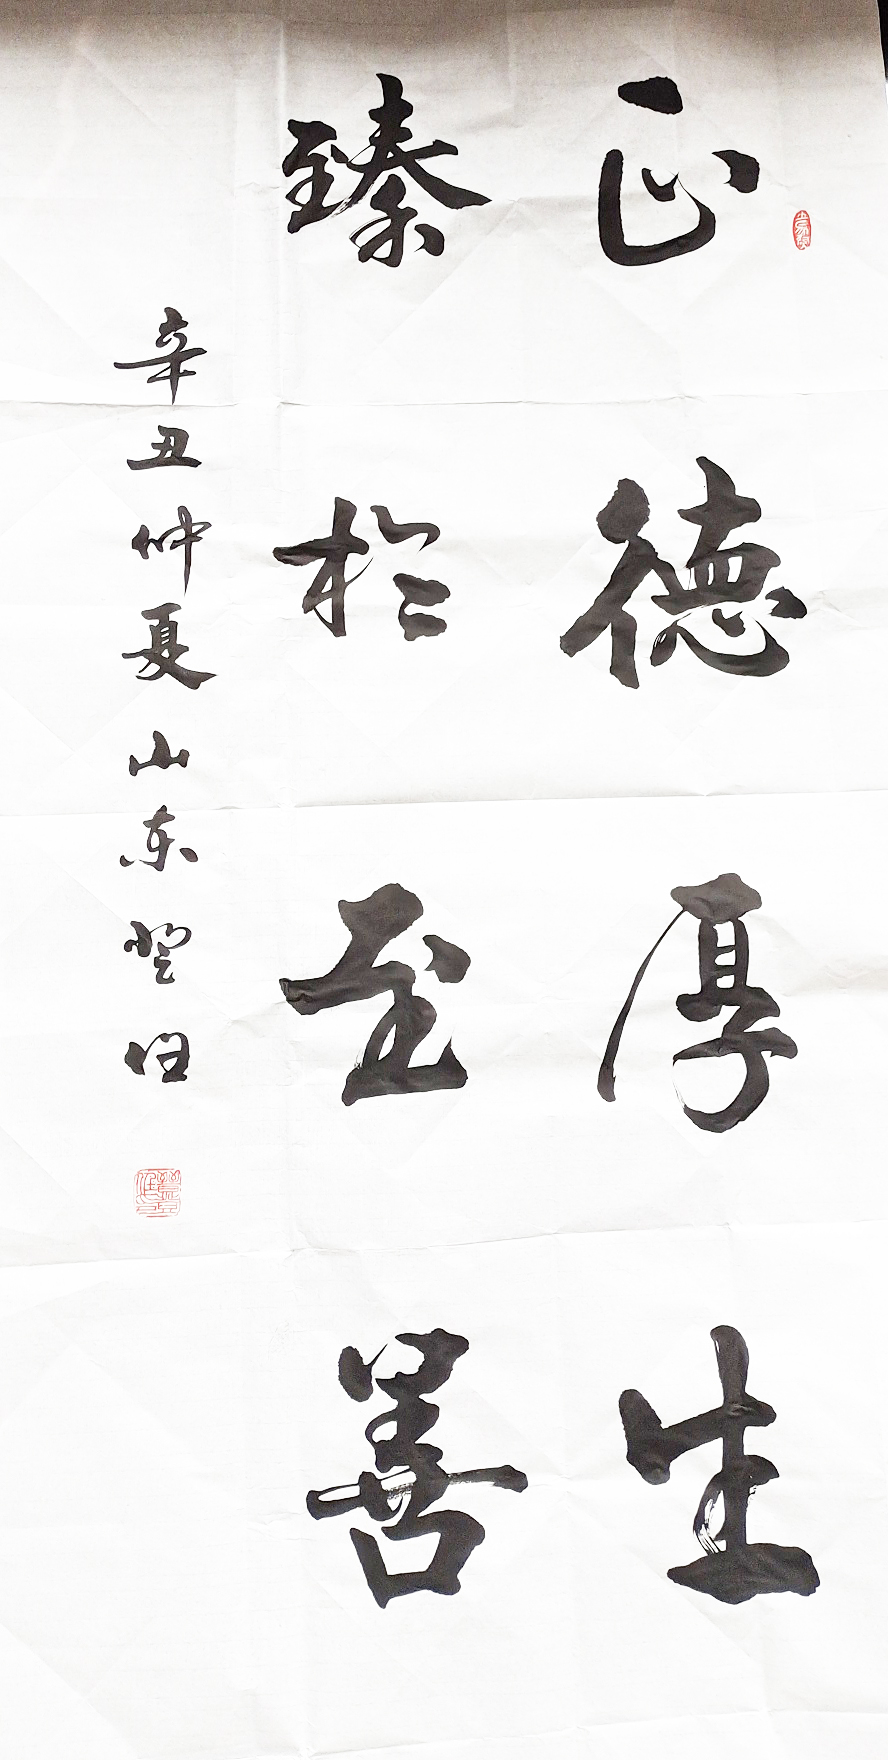 正德厚生
臻於至善
辛丑仲夏山东